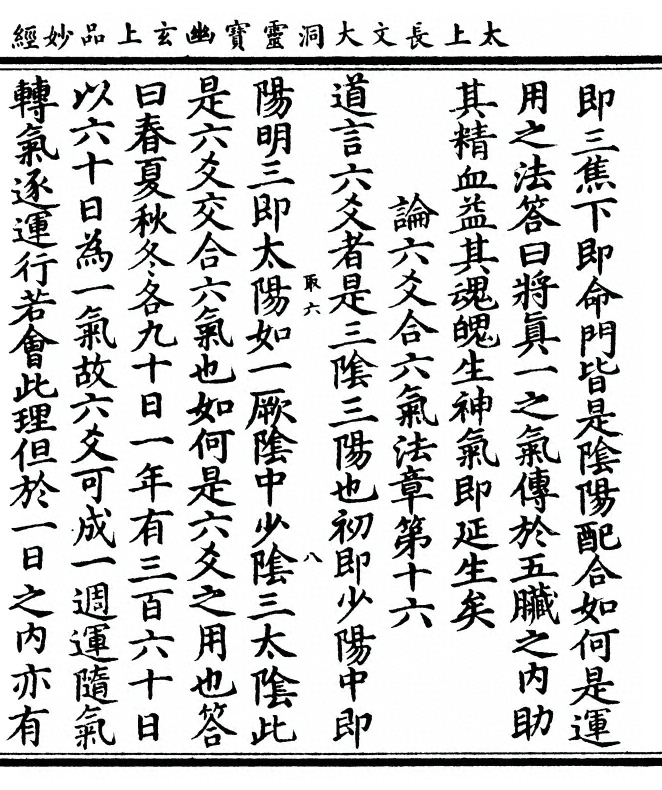 太上長文大洞靈寶幽玄上品妙經
即三焦下即命門皆是陰陽配合如何是運
用之法答曰將眞一之氣傳於五臟之内助
其精血益其魂魄生神氣即延生矣
論六爻合六氣法章第十六
道言六爻者是三陰三陽也初即少陽中即
取六 八
陽明三即太陽如一厥陰中少陰三太陰此
是六爻交合六氣也如何是六爻之用也答
曰春夏秋冬各九十日一年有三百六十日
以六十日為一氣故六爻可成一週運隨氣
轉氣逐運行若會此理但於一日之内亦有